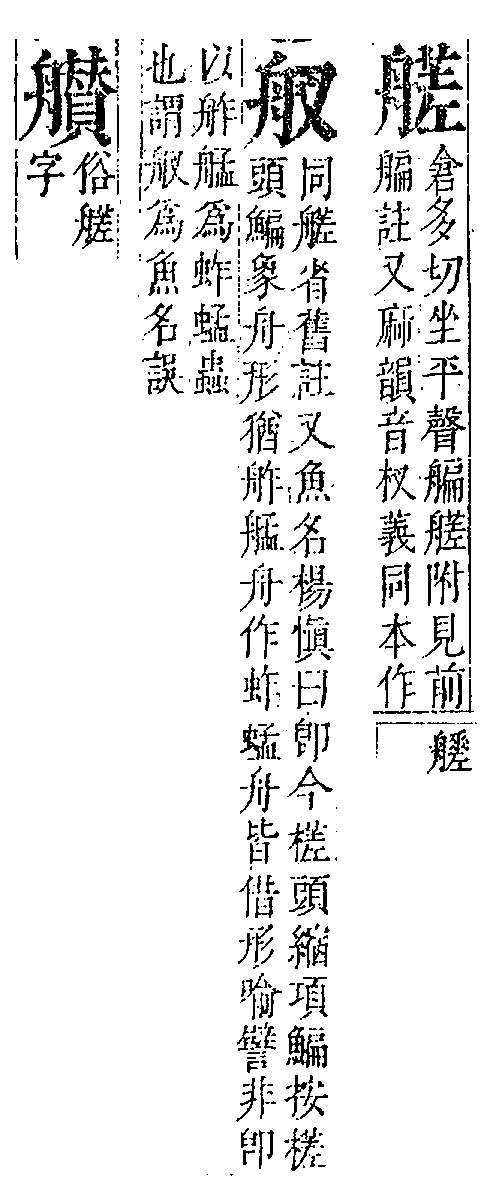 艖
倉多切坐平聲艑艖附見前
艑註又麻韻音杈義同本作
䑡
同艖省舊註又魚名楊愼曰卽今槎頭縮項鯿按槎
頭鯿象舟形猶舴艋舟作蚱蜢舟皆借形喻譬非卽
以舴艋爲蚱蜢蟲
也謂䑡爲魚名誤
俗艖
字